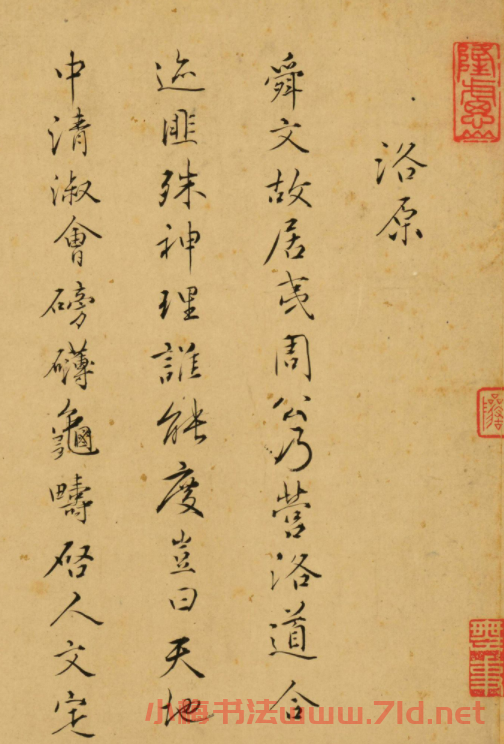 洛原
舜文故居夷周公乃營洛道合
迹匪殊神理誰能度豈曰天地
中清淑會磅礴龜疇啓人文宅
小梅书法www.7ld.net